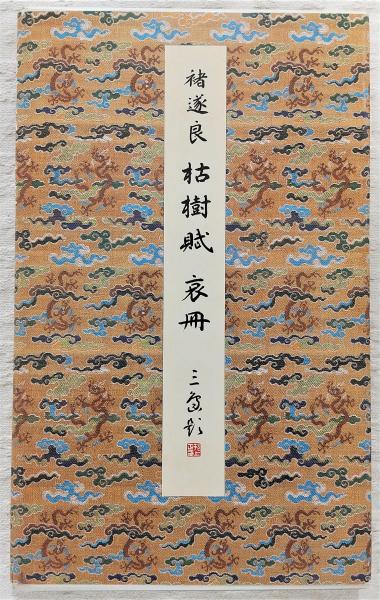 褚遂良 枯樹賦 哀冊